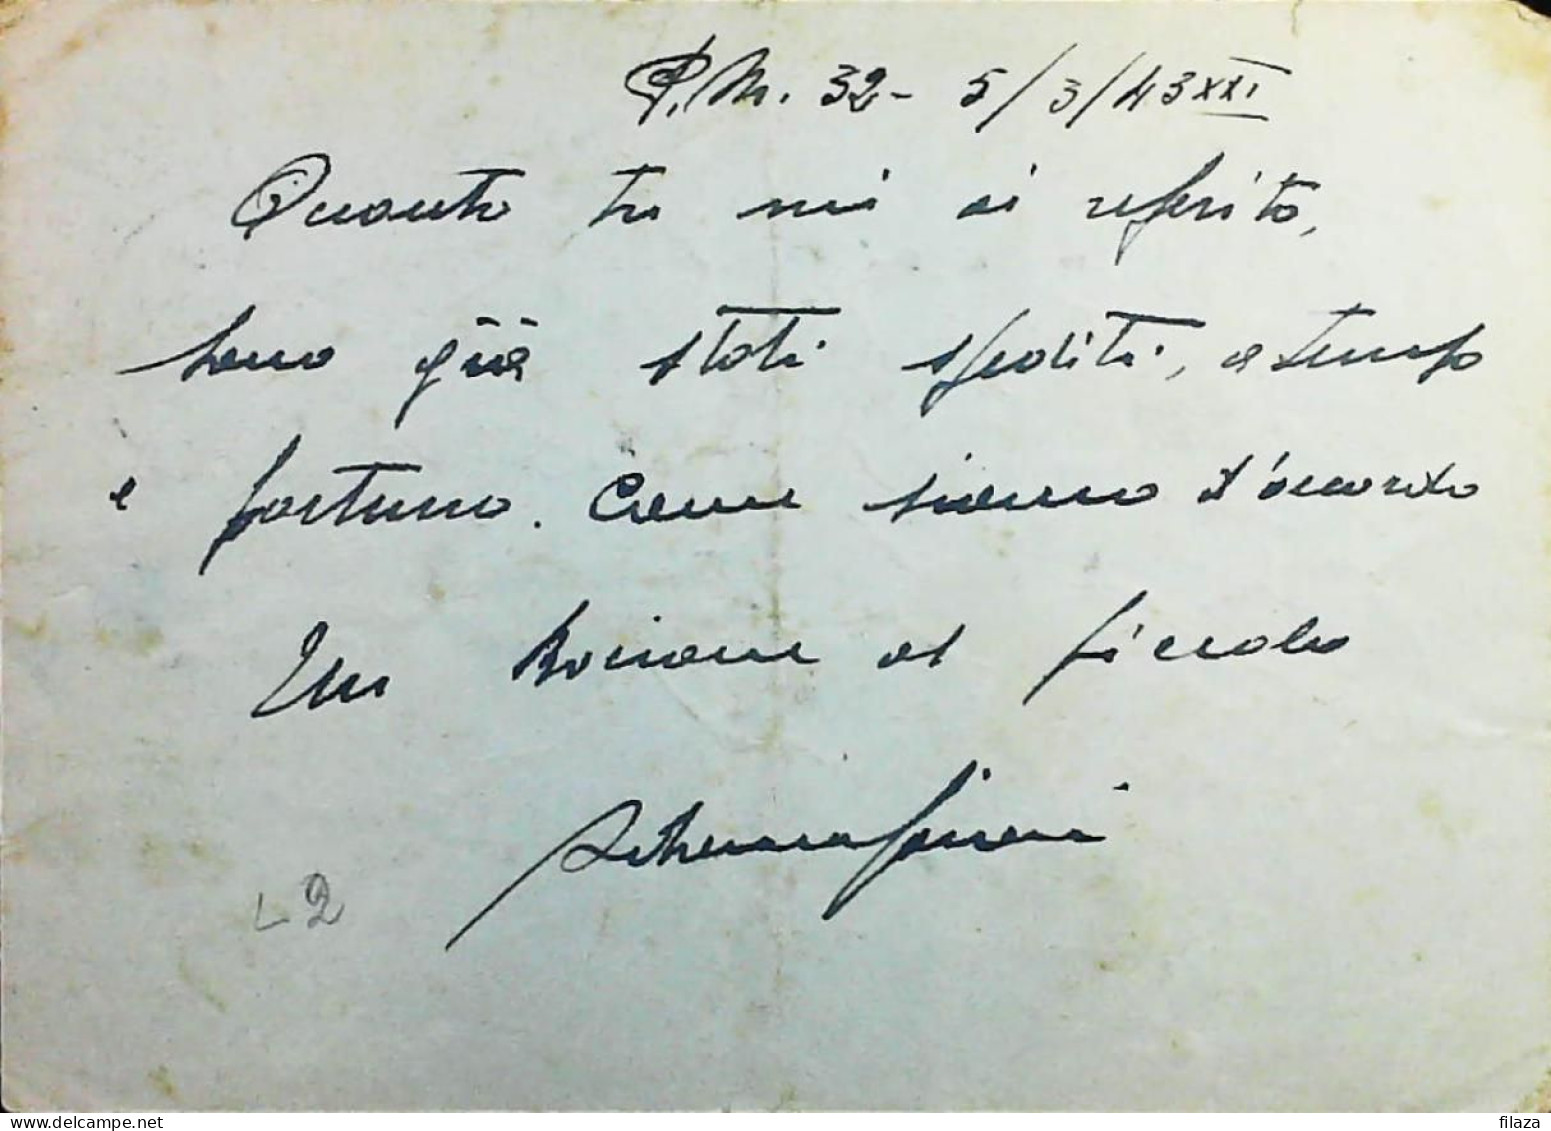 P.M. 32 - 5/3/43 XXI
Quanto tu mi ai referito,
sono già stati spediti, a tempo
e fortuna. Come siamo d'accordo
Un Bacione al piccolo
L 2
filaza